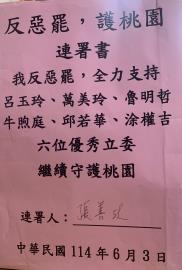 反惡罷，護桃園
連署書
我反惡罷，全力支持
呂玉玲、萬美玲、魯明哲
牛煦庭、邱若華、涂權吉
六位優秀立委
繼續守護桃園
連署人：張善政
中華民國114年6月3日